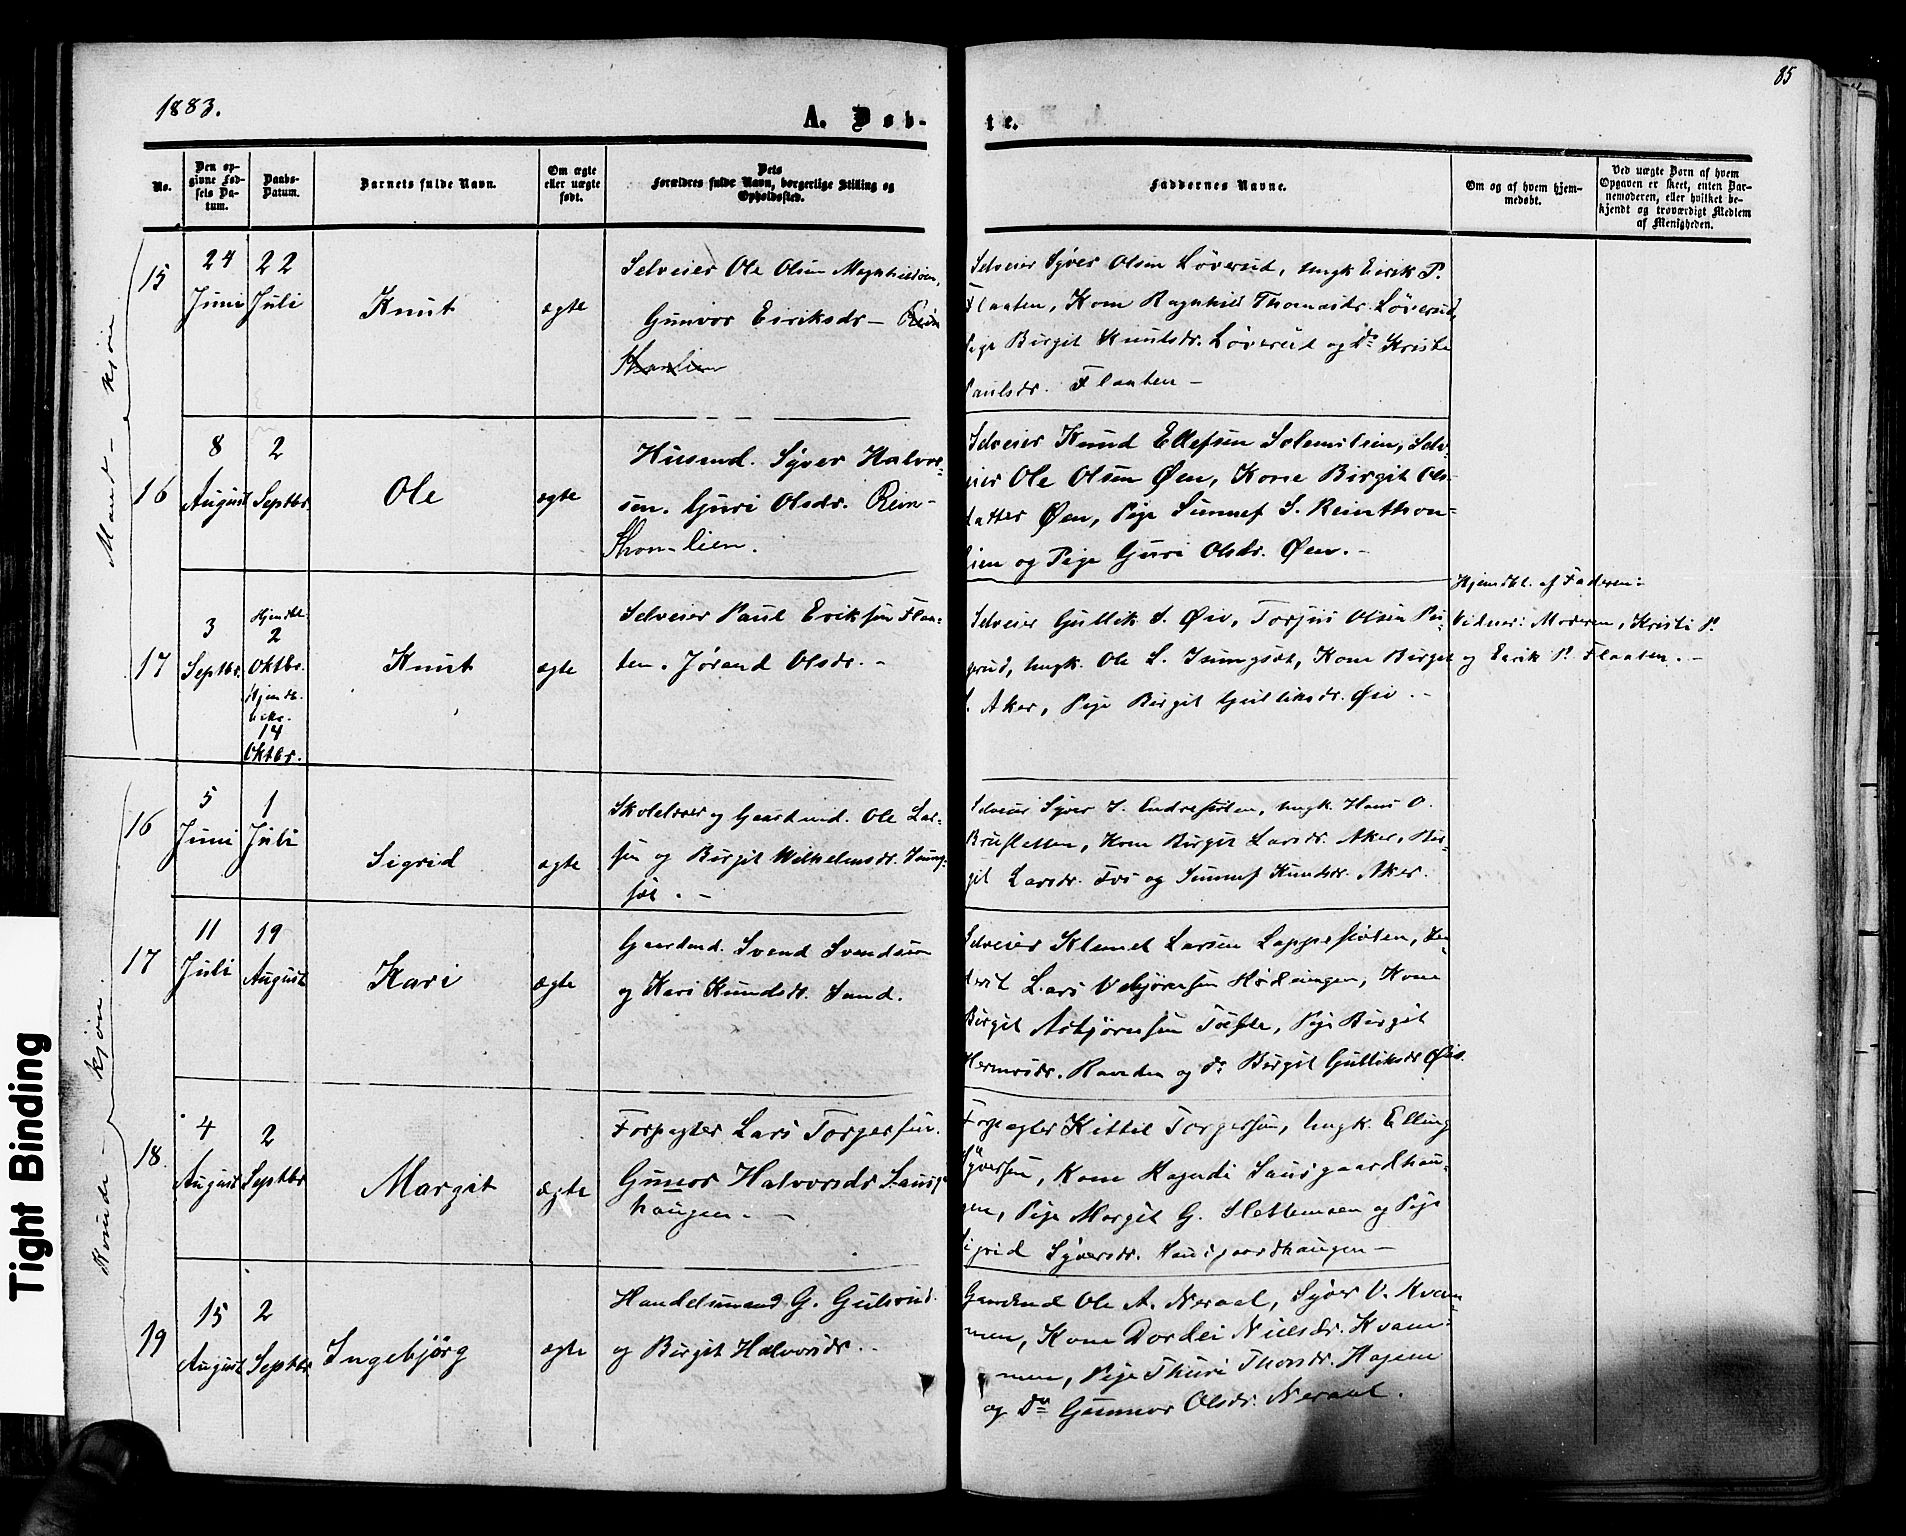 1883.
A. Døb-
te.
85
No.
Den op-
givne Fød-
sels Da-
tum.
Daabs-
Datum.
Barnets fulde Navn.
Om ægte
eller uægte
født.
Dets
Forældres fulde Navn, borgerlige Stilling og
Opholdssted.
Faddernes Navne.
Om og af hvem hjem-
medøbt.
Ved uægte Børn af hvem
Opgaven er skeet, enten Bar-
nemoderen, eller hvilket be-
kjendt og troværdigt Medlem
af Menigheden.
Mandkjøn
15
24
Juni
22
Juli
Knut
ægte
Selveier Ole Olsen
Gunvor Eiriksdr - Rein
Selveier Syver Olsen Løverud, Ungk Eirik P.
Flaaten, Kone Ragnhild Thomasdr. Løverud,
Pige Birgit Knutsdr. Løverud og Do Kristi
Paulsdr. Flaaten -
16
8
August
2
Septbr.
Ole
ægte
Husmd. Syver Halvor-
sen. Guri Olsdr. Rein-
thon-lien.
Selveier Knud Ellefsen Solemslien, Selv-
eier Ole Olsen Øen, Kone Birgit Ols-
datter Øen, Pige Sunnef S. Reinthon-
lien og Pige Guri Olsdr. Øen. -
17
3
Septbr.
Hjemdbt.
2
Oktbr.
14
Oktbr.
Knut
ægte
Selveier Paul Eriksen Flaa-
ten. Jørand Olsdr. -
Selveier Gullik S. Øiv, Torjus Olsen
Ungk. Ole L. Kone Birget
L. Aker, Pige Birgit Gulliksdr. Øiv. -
Hjemdbt. af Faderen:
Vidner: Moderen, Kristi P.
og Eirik P. Flaaten. -
Kvindekjøn
16
5
Juni
1
Juli
Sigrid
ægte
Skolelærer og Gaardmd. Ole Lar-
sen og Birgit Wilhelmsdr.
Selveier Syver Ungk. Hans O.
Brusletten, Kone Birgit Larsdr. Aker, Bir-
git Larsdr. og Sunnef Knudsdr. Aker.
17
11
Juli
19
August
Kari
ægte
Gaardmd. Svend Svendsen
og Kari Knudsdr. Sand.
Selveier Klemet Larsen
Lars Kone
Birgit Asbjørnsen Tofte, Pige Birgit
og Do Birgit Gulliksdr Øiv.
18.
4
August
2
Septbr
Margit
ægte
Forpagter Lars Torgersen.
Gunor Halvorsdr
haugen. -
Forpagter Kittil Torgersen, Ungk. Elling
Syversen, Kone
gen, Pige Margit G. Slettemoen og Pige
Sigrid Syversdr.
19
15
August
2
Septbr.
Ingebjørg
ægte
Handelsmand G. Gulsvud.
og Birgit Halvorsdr. -
Gaardmd Ole A. Neraal, Syver O. Kvem-
men, Kone Dordei Nielsdr. Kvem-
men, Pige Thuri Thorsdr. Hagene
og Do Gunnor Olsdr. Neraal.
Tight Binding